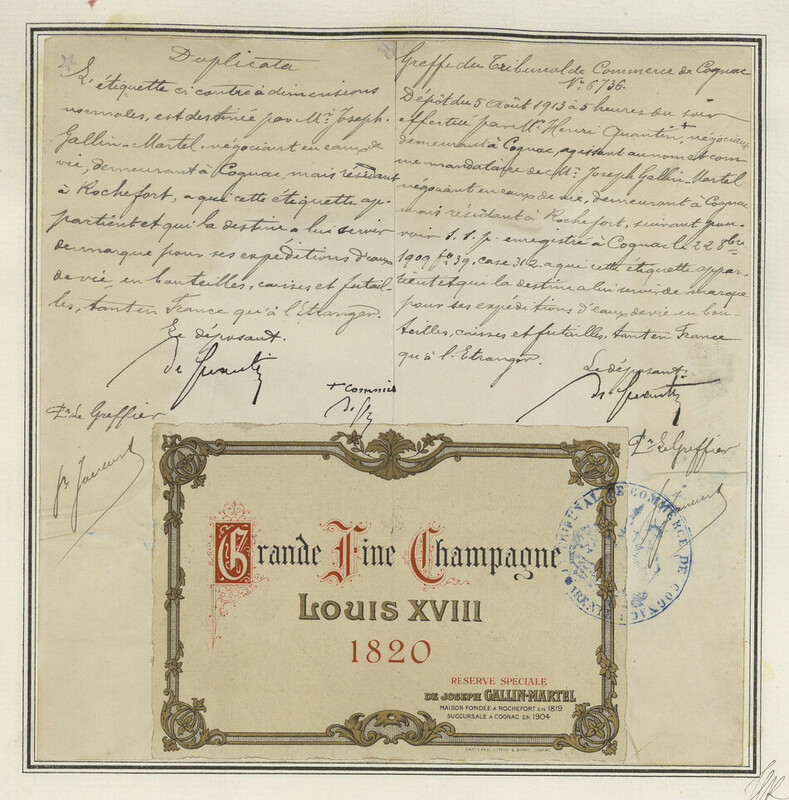 Duplicata
L'étiquette ci contre à dimensions
normales, est destinée par Mr. Joseph
Gallin-Martel négociant en eaux de
vie, demeurant à Cognac, mais résidant
à Rochefort, a qui cette étiquette ap-
partient et qui la destine a lui servir
de marque pour ses expéditions d'eaux
de vie, en bouteilles, caisses et futail-
les, tant en France qu'à l'Etranger.
Le déposant.
Pr. Le Greffier
+ Commis
Greffe du Tribunal de Commerce de Cognac
No. 6736.
Dépôt du 5 Août 1913 à 5 heures du soir
effectué par Mr. Henri Quantin, + négociant
demeurant à Cognac, agissant au nom et com
me mandataire de Mr. Joseph Gallin-Martel
négociant en eaux de vie, demeurant à Cognac
mais résidant à Rochefort, suivant pou-
voir s.s.p. enregistré à Cognac le 22 8bre
1909 fo 39, case 312 a qui cette étiquette appar-
tient et qui la destine a lui servir de marque
pour ses expéditions d'eaux de vie en bou-
teilles, caisses et futailles, tant en France
qu'à l'Etranger.
Le déposant.
Pr. Le Greffier
Grande Fine Champagne
LOUIS XVIII
1820
RÉSERVE SPÉCIALE
DE JOSEPH GALLIN-MARTEL
MAISON FONDÉE A ROCHEFORT EN 1819
SUCCURSALE A COGNAC EN 1904
TRIBUNAL DE COMMERCE DE COGNAC